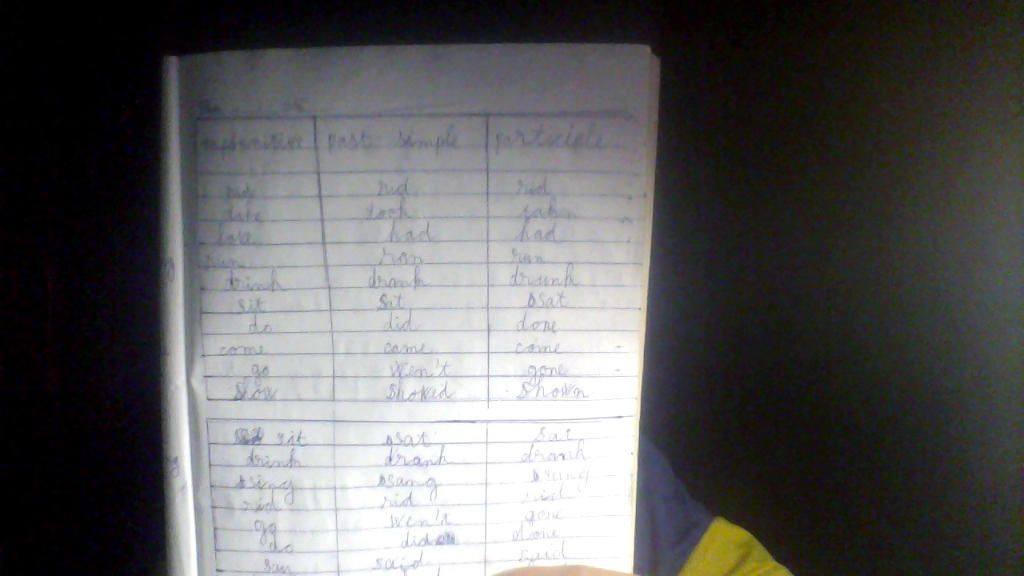 past simple participle
rid rid rid
take took
have had had
run ran run
drink drank drunk
sit sit sat
do did done
come came come
go wen't gone
show showed shown
sit sat sat
drink drank drank
sing sang sung
rid rid rid
go wen't gone
do did done
said said